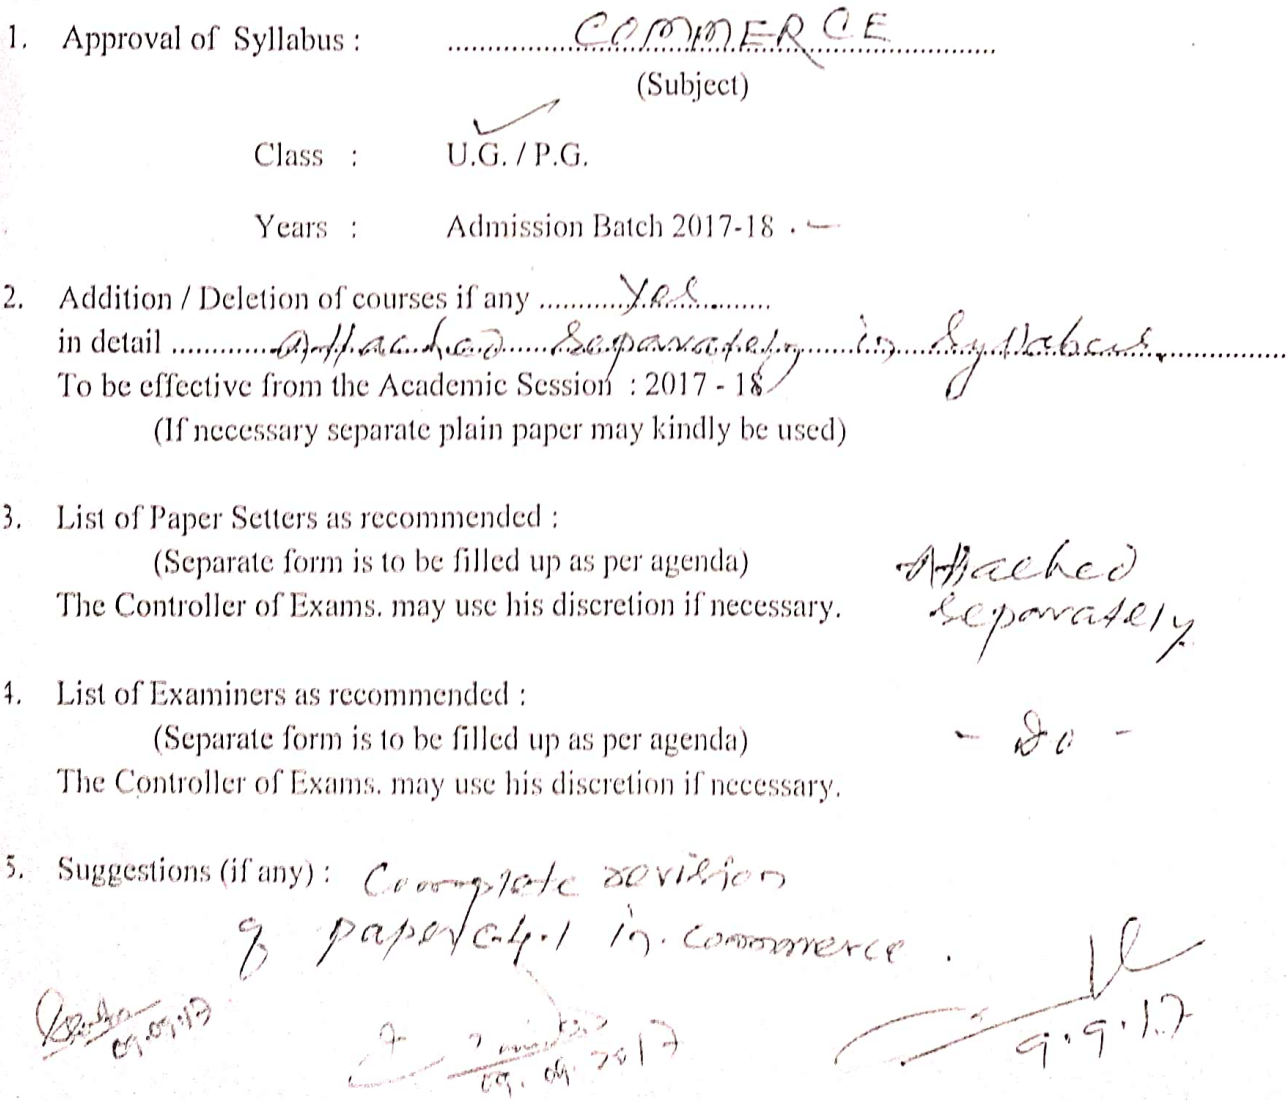 1. Approval of Syllabus : COMMERCE
(Subject)
Class : U.G. / P.G.
Years : Admission Batch 2017-18 . -
2. Addition / Deletion of courses if any ............Yes............
in detail ............Attached Separately in Syllabus.............
To be effective from the Academic Session : 2017 - 18
(If necessary separate plain paper may kindly be used)
3. List of Paper Setters as recommended :
(Separate form is to be filled up as per agenda) Attached
The Controller of Exams. may use his discretion if necessary. separately
4. List of Examiners as recommended :
(Separate form is to be filled up as per agenda) - Do -
The Controller of Exams. may use his discretion if necessary.
5. Suggestions (if any) : Complete revision
of paper C-4.1 in. commerce .
09.09.17
09.09.2017
9.9.17